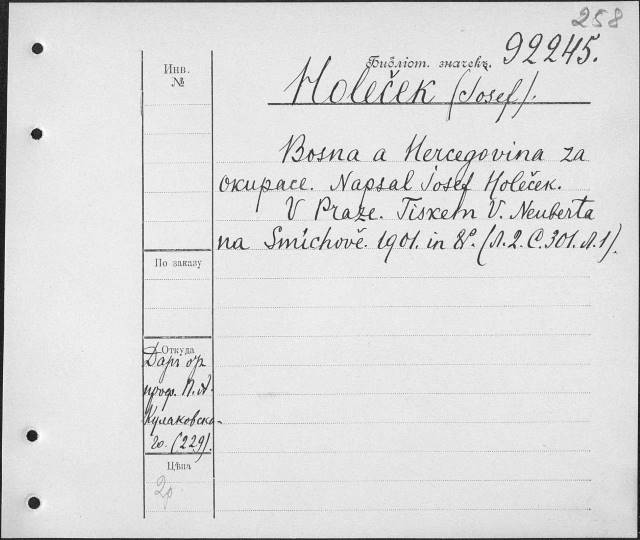 258
Библіот. значекъ. 92245.
Инв.
№
Holeček (Josef).
Bosna a Hercegovina za
okupace. Napsal Josef Holeček.
V Praze. Tiskem V. Neuberta
na Smíchově. 1901. in 8º. (Л. 2. С. 301. Л. 1).
По заказу
Откуда
Даръ отъ
проф. П. А.
Кулаковска-
го. (229).
Цѣна